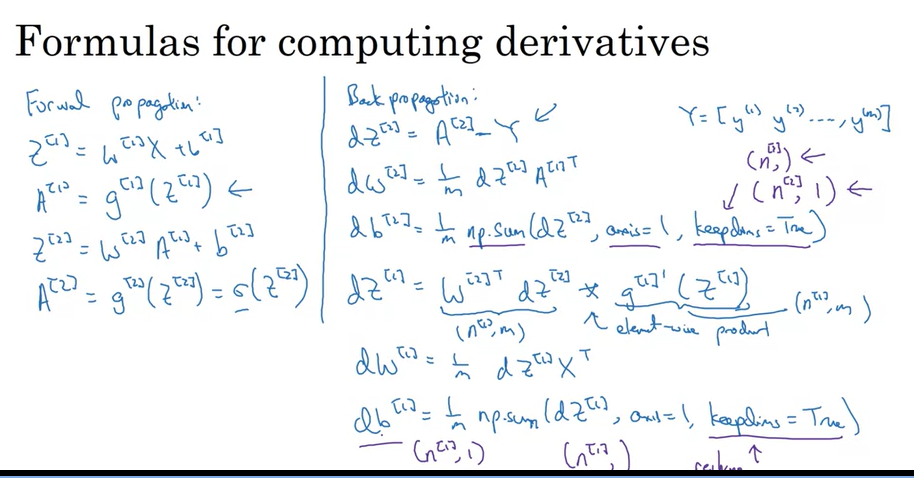 Formulas for computing derivatives
Forward propagation:
Z^[1] = W^[1] X + b^[1]
A^[1] = g^[1](Z^[1]) ←
Z^[2] = W^[2] A^[1] + b^[2]
A^[2] = g^[2](Z^[2]) = σ(Z^[2])
Back propagation:
dZ^[2] = A^[2] - Y ↙
dW^[2] = 1/m dZ^[2] A^[1]T
db^[2] = 1/m np.sum(dZ^[2], axis=1, keepdims=True)
dZ^[1] = W^[2]T dZ^[2] * g^[1]'(Z^[1])
(n^[1], m) ↖ element-wise product (n^[1], m)
dW^[1] = 1/m dZ^[1] X^T
db^[1] = 1/m np.sum(dZ^[1], axis=1, keepdims=True)
(n^[1], 1) (n^[1],) ↑
Y = [y^(1) y^(2) ..., y^(m)]
(n^[2],) ←
↙ (n^[2], 1) ←